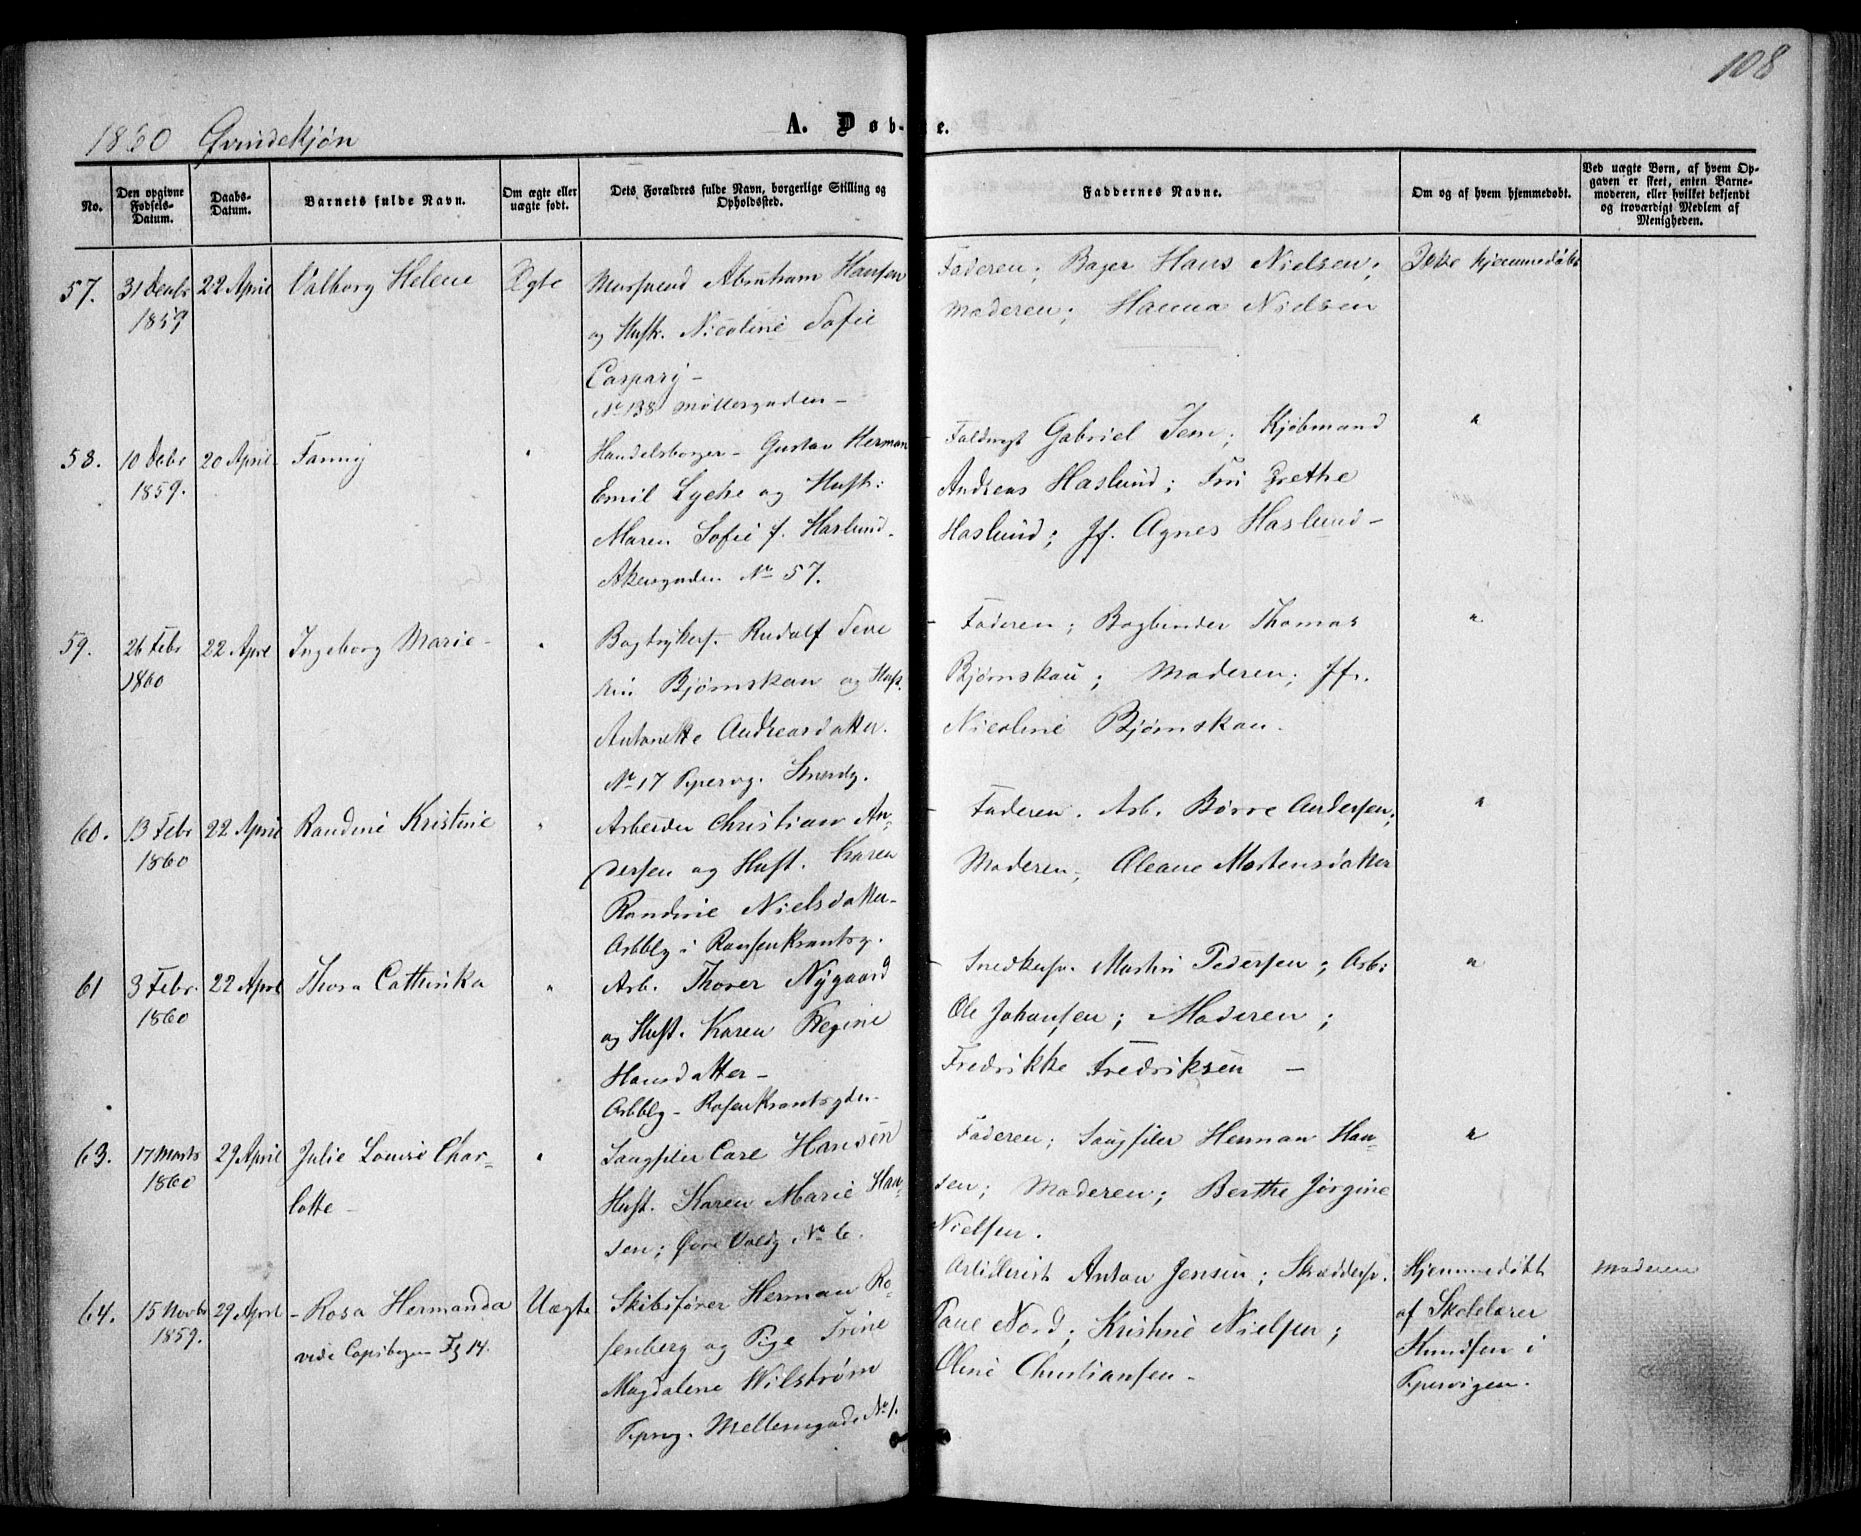 108
1860 Qvindekjøn
A. Døb-te.
No.
Den opgivne Fødsels-Datum.
Daabs-Datum.
Barnets fulde Navn.
Om ægte eller uægte født.
Dets Forældres fulde Navn, borgerlige Stilling og Opholdssted.
Faddernes Navne.
Om og af hvem hjemmedøbt.
Ved uægte Børn, af hvem Opgaven er skeet, enten Barnemoderen, eller hvilket bekjendt og troværdigt Medlem af Menigheden.
57.
31 Decbr
1859
22 April
Valborg Helene
Ægte
Abraham Hansen
og Hustr. Nicoline Sofie
Caspary -
No 138 Møllergaden -
Faderen; Bager Hans Nielsen;
Moderen; Hanna Nielsen
Ikke hjemmedøbt
58.
10 Decbr
1859.
20 April
Fanny
"
Handelsborger - Gustav Herman
Emil Lyche og Hustr:
Maren Sofie f. Haslund.
Akersgaden No 57.
Gabriel Kjøbmand
Andreas Haslund; Fru Grethe
Haslund; Jf. Agnes Haslund -
"
59.
26 Febr
1860
22 Apr
Ingeborg Marie -
"
Rudolf Seve
rin Bjørnskau og Hust.
Antonette Andreasdatter.
No 17 Pipervg.
Faderen; Bogbinder Thomas
Bjørnskau; Moderen; Jfr.
Nicoline Bjørnskau.
"
60.
13 Febr
1860
22 April
Randine Kristine
"
Arbeider Christian An-
dersen og Hust. Karen
Randine Nielsdatter -
Arbblg i Rosenkrantsg.
Faderen. Arb. Børre Andersen;
Moderen; Oleane Mortensdatter
"
61
3 Febr.
1860
22 April
Thora Cathinka
"
Arb. Thorer Nygaard
og Hust. Karen Regine
Hansdatter -
Arbblg - Rosenkrantsgden -
Snedkersv. Martin Pedersen; Arb:
Ole Johansen; Moderen;
Fredrikke Fredriksen -
"
63.
17 Marts
1860
29 April
Julie Louise Char-
lotte -
"
Saugfiler Carl Hansen
Hust. Karen Marie Han-
sen; Øvre Voldg No 6.
Faderen; Saugfiler Herman Han-
sen; Moderen; Berthe Jørgine
Nielsen.
"
64.
15 Novbr
1859.
29 April
- Rosa Hermanda
vide Copibogen Fg 14.
Uægte
Skibsfører Herman Ro-
senberg og Pige Trine
Magdalene Wilstrøm
Pipvg. Mellemgade No 1.
Artillerist Anton Jensen; Skræddersv.
Nord; Kristine Nielsen;
Oline Christiansen -
Hjemmedøbt
af Skolelærer
Knudsen i
Pipervigen.
Moderen